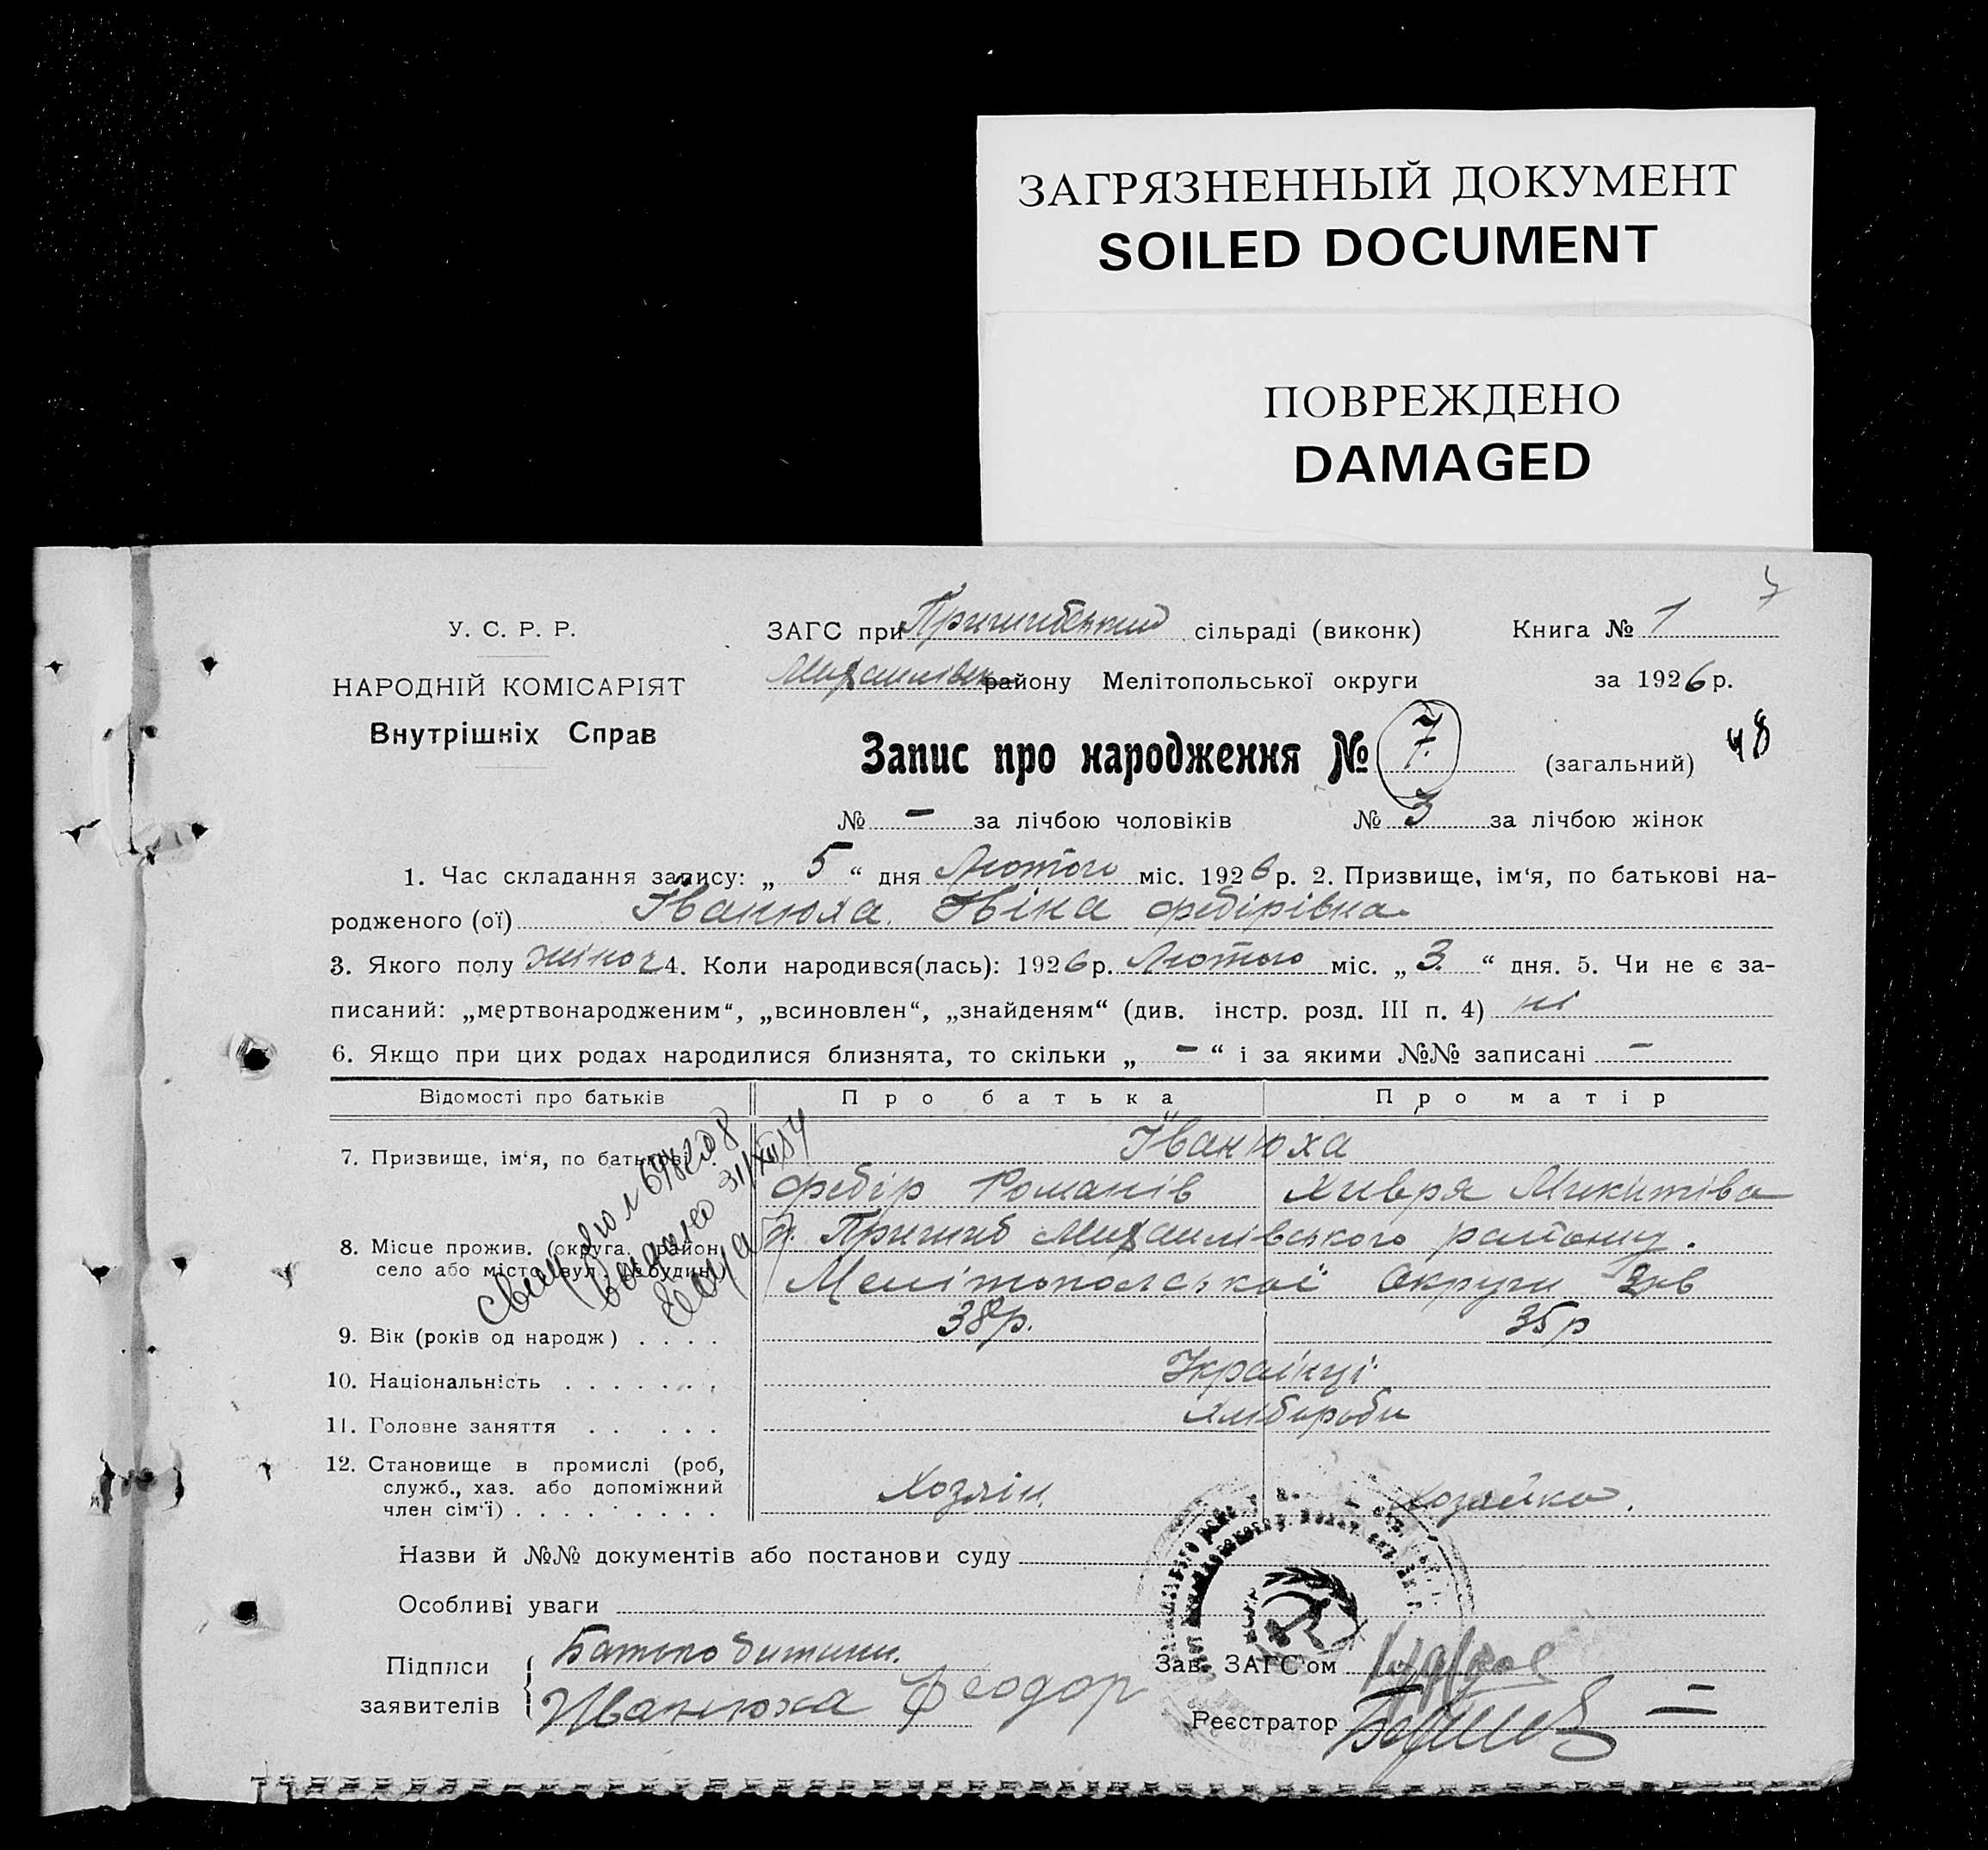 ЗАГРЯЗНЕННЫЙ ДОКУМЕНТ
SOILED DOCUMENT
ПОВРЕЖДЕНО
DAMAGED
7
У. С. Р. Р.
ЗАГС при Пришибський сільраді (виконк) Книга № 1
НАРОДНІЙ КОМІСАРІЯТ
Михайлівськ району Мелітопольської округи за 1926 р.
Внутрішніх Справ
Запис про народження № 7. (загальний) 48
№ – за лічбою чоловіків № 3 за лічбою жінок
1. Час складання запису: „ 5 “ дня Лютого міс. 1926 р. 2. Призвище, ім‘я, по батькові на-
родженого (ої) Іванюха Фебірівна
3. Якого полу жіноч 4. Коли народився(лась): 1926 р. Лютого міс. „ 3. “ дня. 5. Чи не є за-
писаний: „мертвонародженим“, „всиновлен“, „знайденям“ (див. інстр. розд. III п. 4) ні
6. Якщо при цих родах народилися близнята, то скільки „ – “ і за якими №№ записані –
Відомості про батьків Про батька Про матір
7. Призвище, ім‘я, по батькові Іванюха
Фебір Романів Хивря Микитіва
8. Місце прожив. (округа, район, село або місто, вул. № будин.
с. Пришиб Михайлівського району.
Мелітопольської Округи
9. Вік (років од народж) . . . . 38 р. 35 р
10. Національність . . . . . . . Українці
11. Головне заняття . . . . . Хлібороби
12. Становище в промислі (роб,
служб., хаз. або допоміжний
член сім‘ї) . . . . . . . . Хозяін. Хозяйка.
Назви й №№ документів або постанови суду
Особливі уваги
Підписи заявителів { Батько дитини.
Иванюха Феодор
Зав. ЗАГС‘ом
Реєстратор